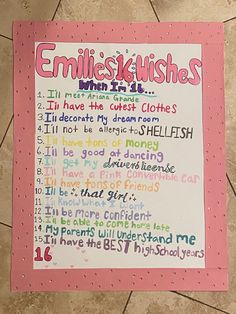 Emilie's 16 Wishes
When I'm 16...
1. I'll meet Ariana Grande
2. I'll have the cutest Clothes
3. I'll decorate My dream room
4. I'll not be allergic to SHELLFISH
5. I'll have tons of money
6. I'll be good at dancing
7. I'll get my drivers license
8. I'll have a Pink Convertible Car
9. I'll have tons of friends
10. I'll be that girl
11. I'll Know What I Want
12. I'll be more Confident
13. I'll be able to come home late
14. My Parents Will Understand me
15. I'll have the BEST high School years
16